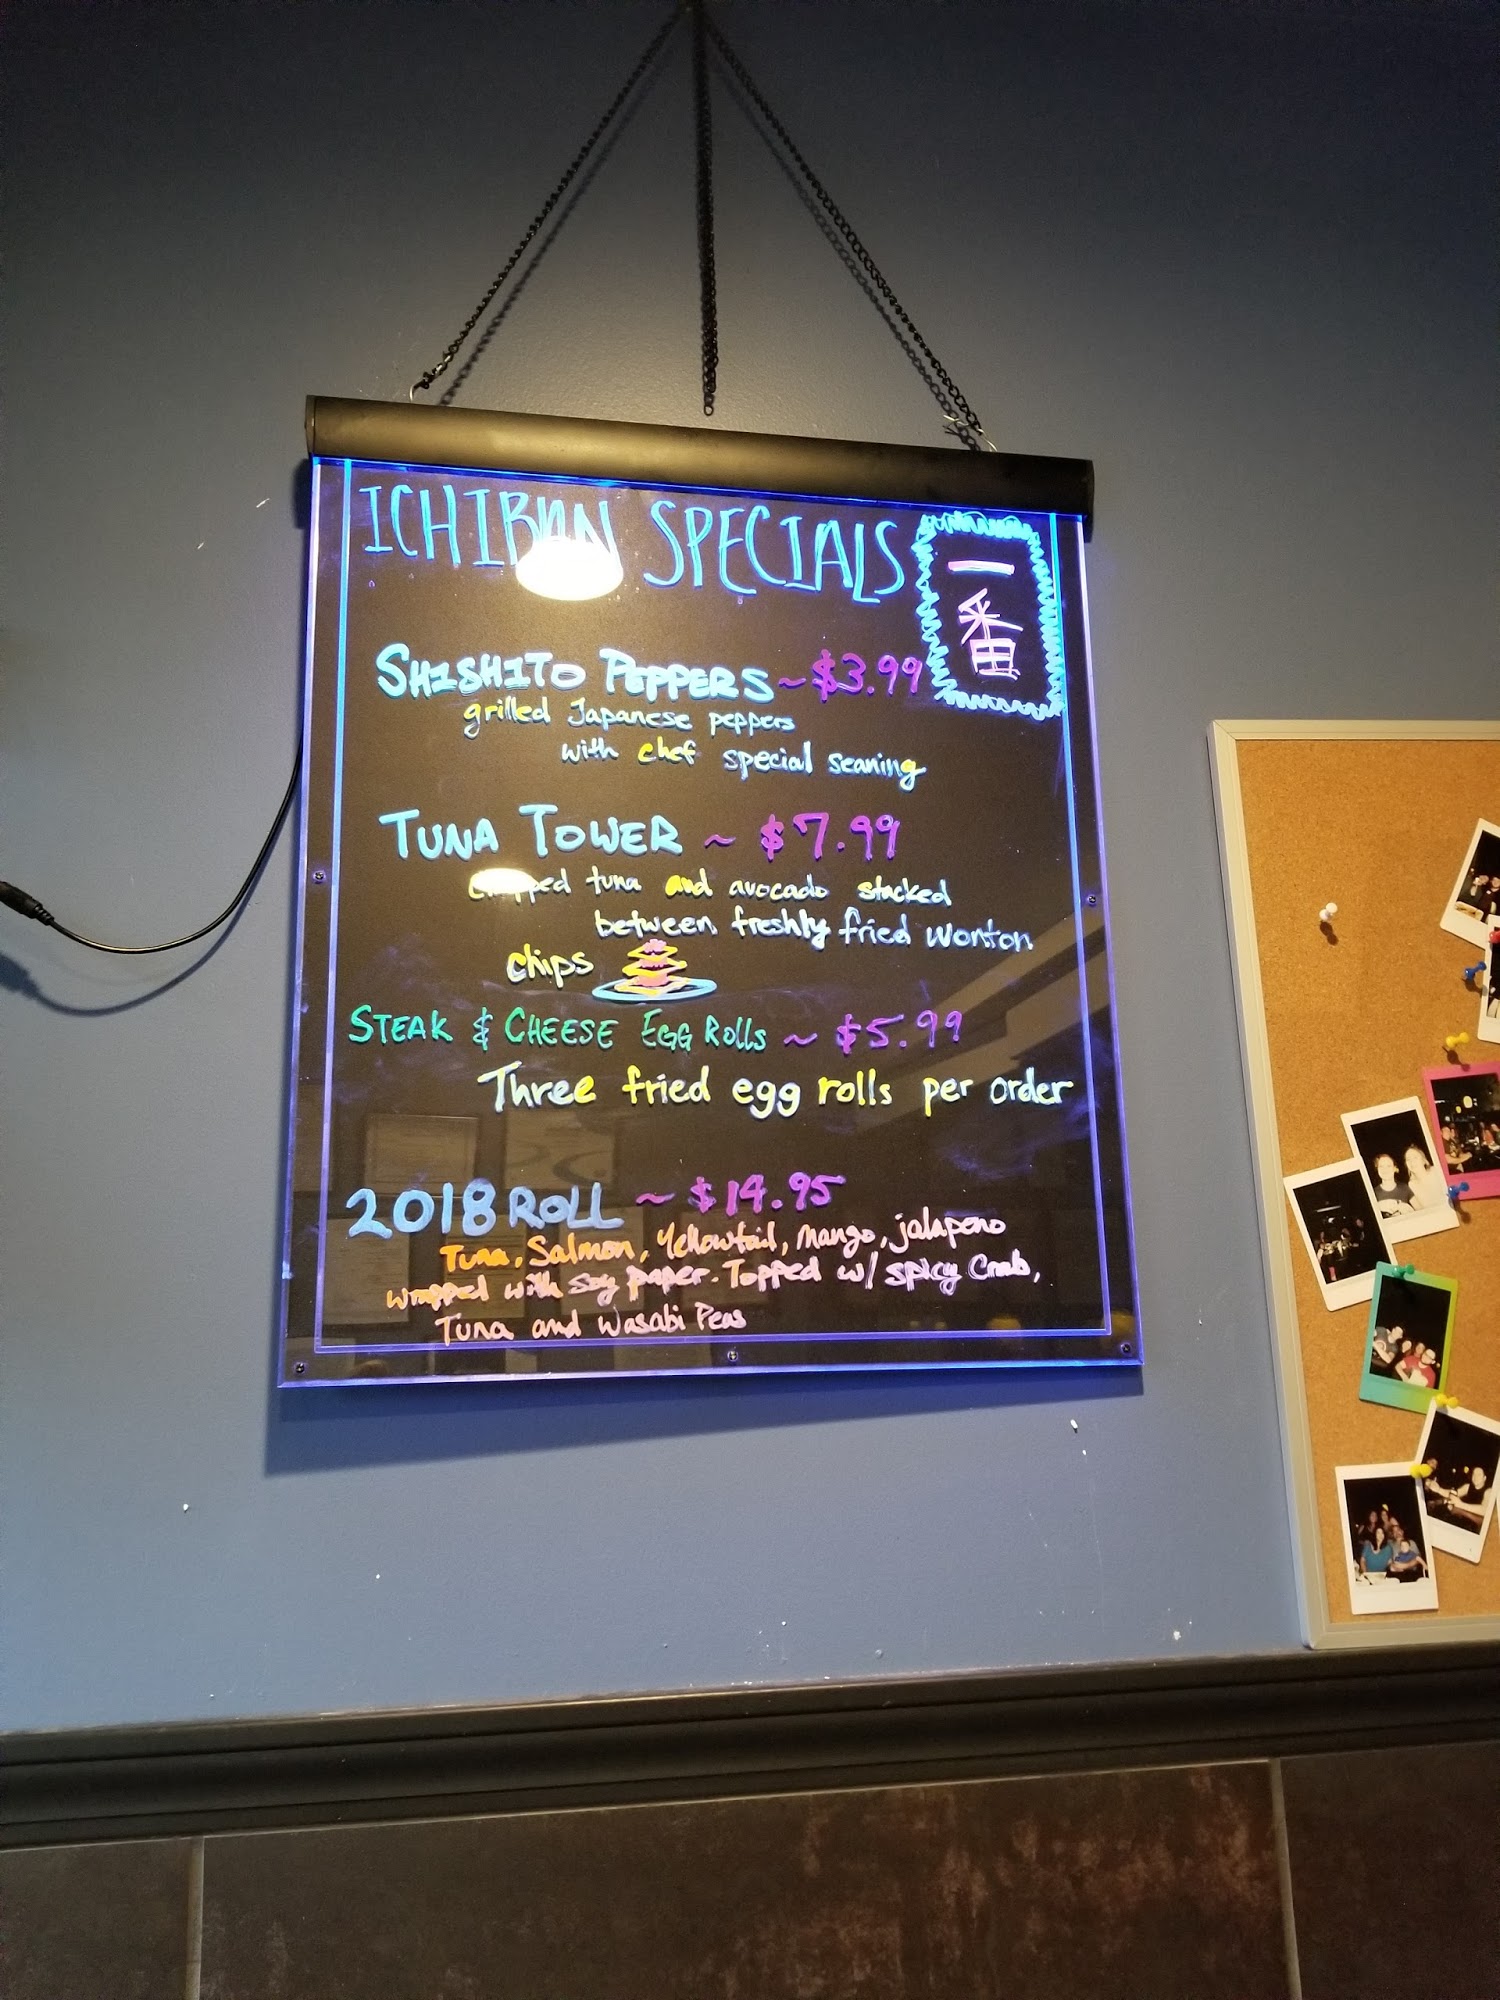 ICHIBAN SPECIALS
一番
SHISHITO PEPPERS ~ $3.99
grilled Japanese peppers
with chef special seaning
TUNA TOWER ~ $7.99
chopped tuna and avocado stacked
between freshly fried wonton
chips
STEAK & CHEESE EGG Rolls ~ $5.99
Three fried egg rolls per order
2018 ROLL ~ $14.95
Tuna, Salmon, Yellowtail, Mango, jalapeno
wrapped with Soy paper. Topped w/ spicy Crab,
Tuna and Wasabi Peas